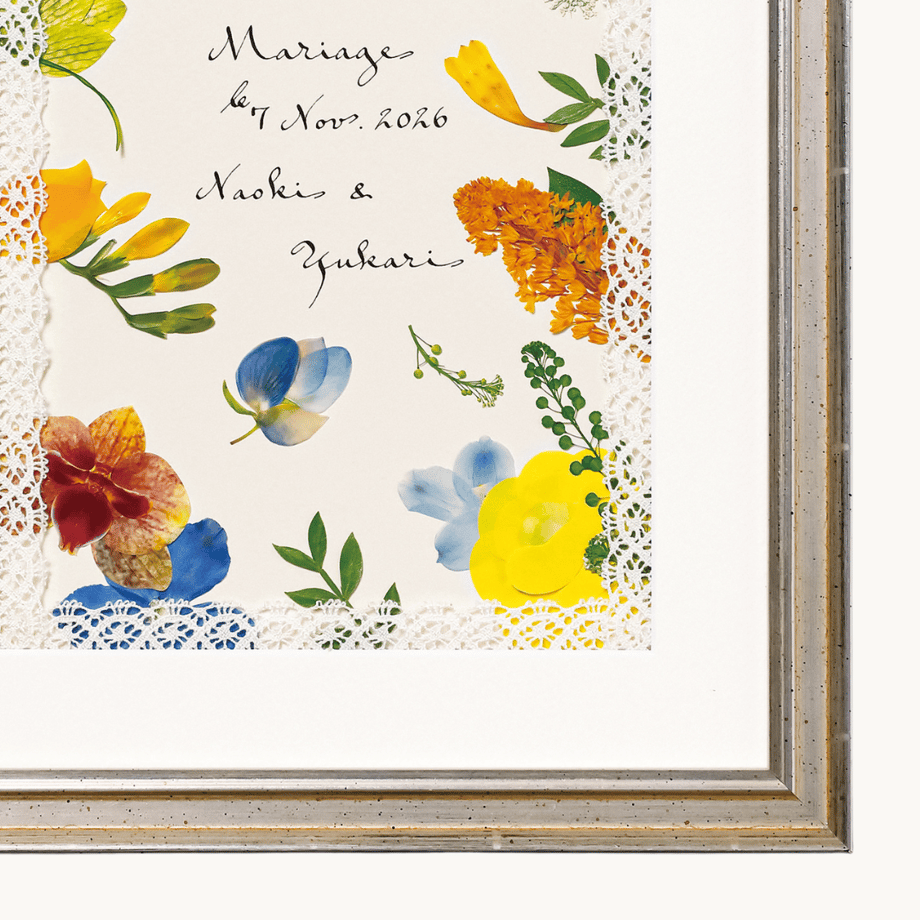 Mariage
le 7 Nov. 2026
Naoki &
Yukari